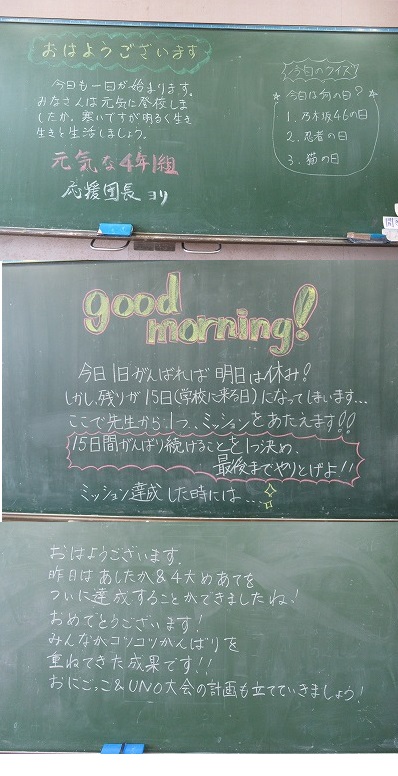 おはようございます
今日も一日が始まります。
みなさんは元気に登校しま
したか。寒いですが明るく生き
生きと生活しましょう。
元気な4年1組
応援団長より
今日のクイズ
★今日は何の日?★
1. 乃木坂46の日
2. 忍者の日
3. 猫の日
good
morning!
今日1日がんばれば明日は休み!
しかし、残りが15日(学校に来る日)になってしまいます…
ここで先生から1つ、ミッションをあたえます!!
15日間がんばり続けることを1つ決め、
最後までやりとげよ!!
ミッション達成した時には…
おはようございます。
昨日はあしたか&4大めあてを
ついに達成することができましたね!
おめでとうございます!
みんながコツコツがんばりを
重ねてきた成果です!!
おにごっこ&UNO大会の計画も立てていきましょう!